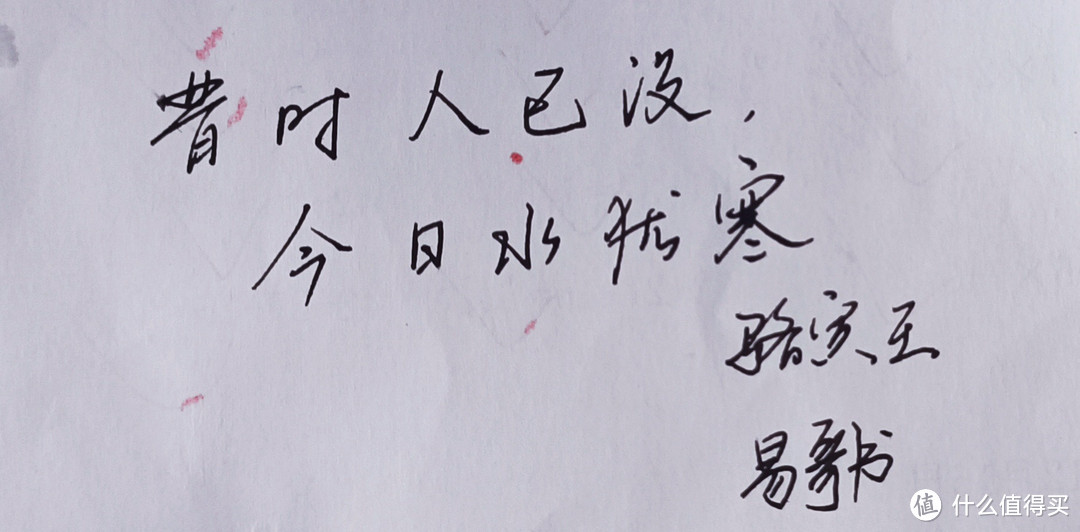 昔时人已没，
今日水犹寒
骆宾王
易哥书
值 什么值得买